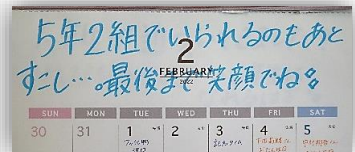 5年2組でいられるのもあと
2
すこし…。最後まで笑顔でね。
FEBRUARY
2022
SUN MON TUE WED THU FRI SAT
30 31 1 2 3 4 5